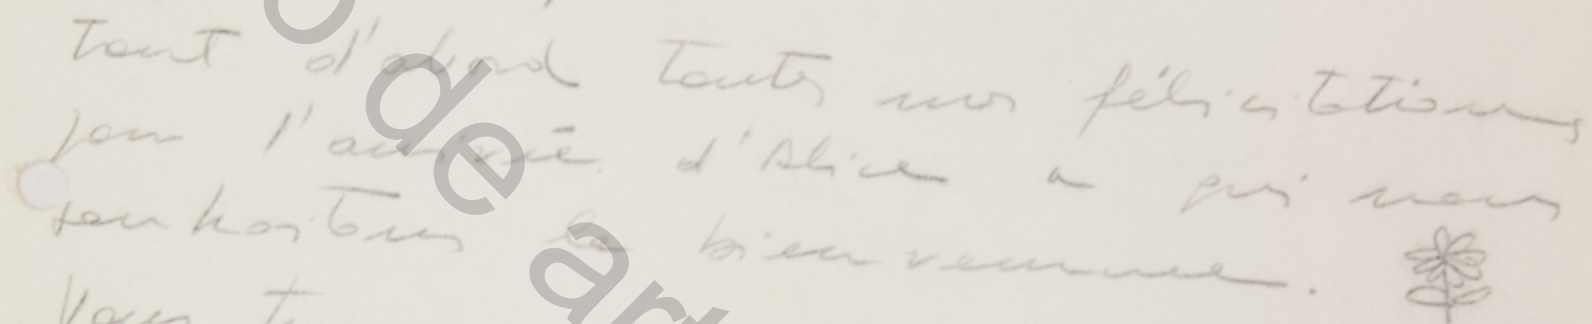 Tout d'abord toutes nos félicitations
pour l'arrivée d'Alice a qui nous
souhaitons la bienvenue.
Vous
de art